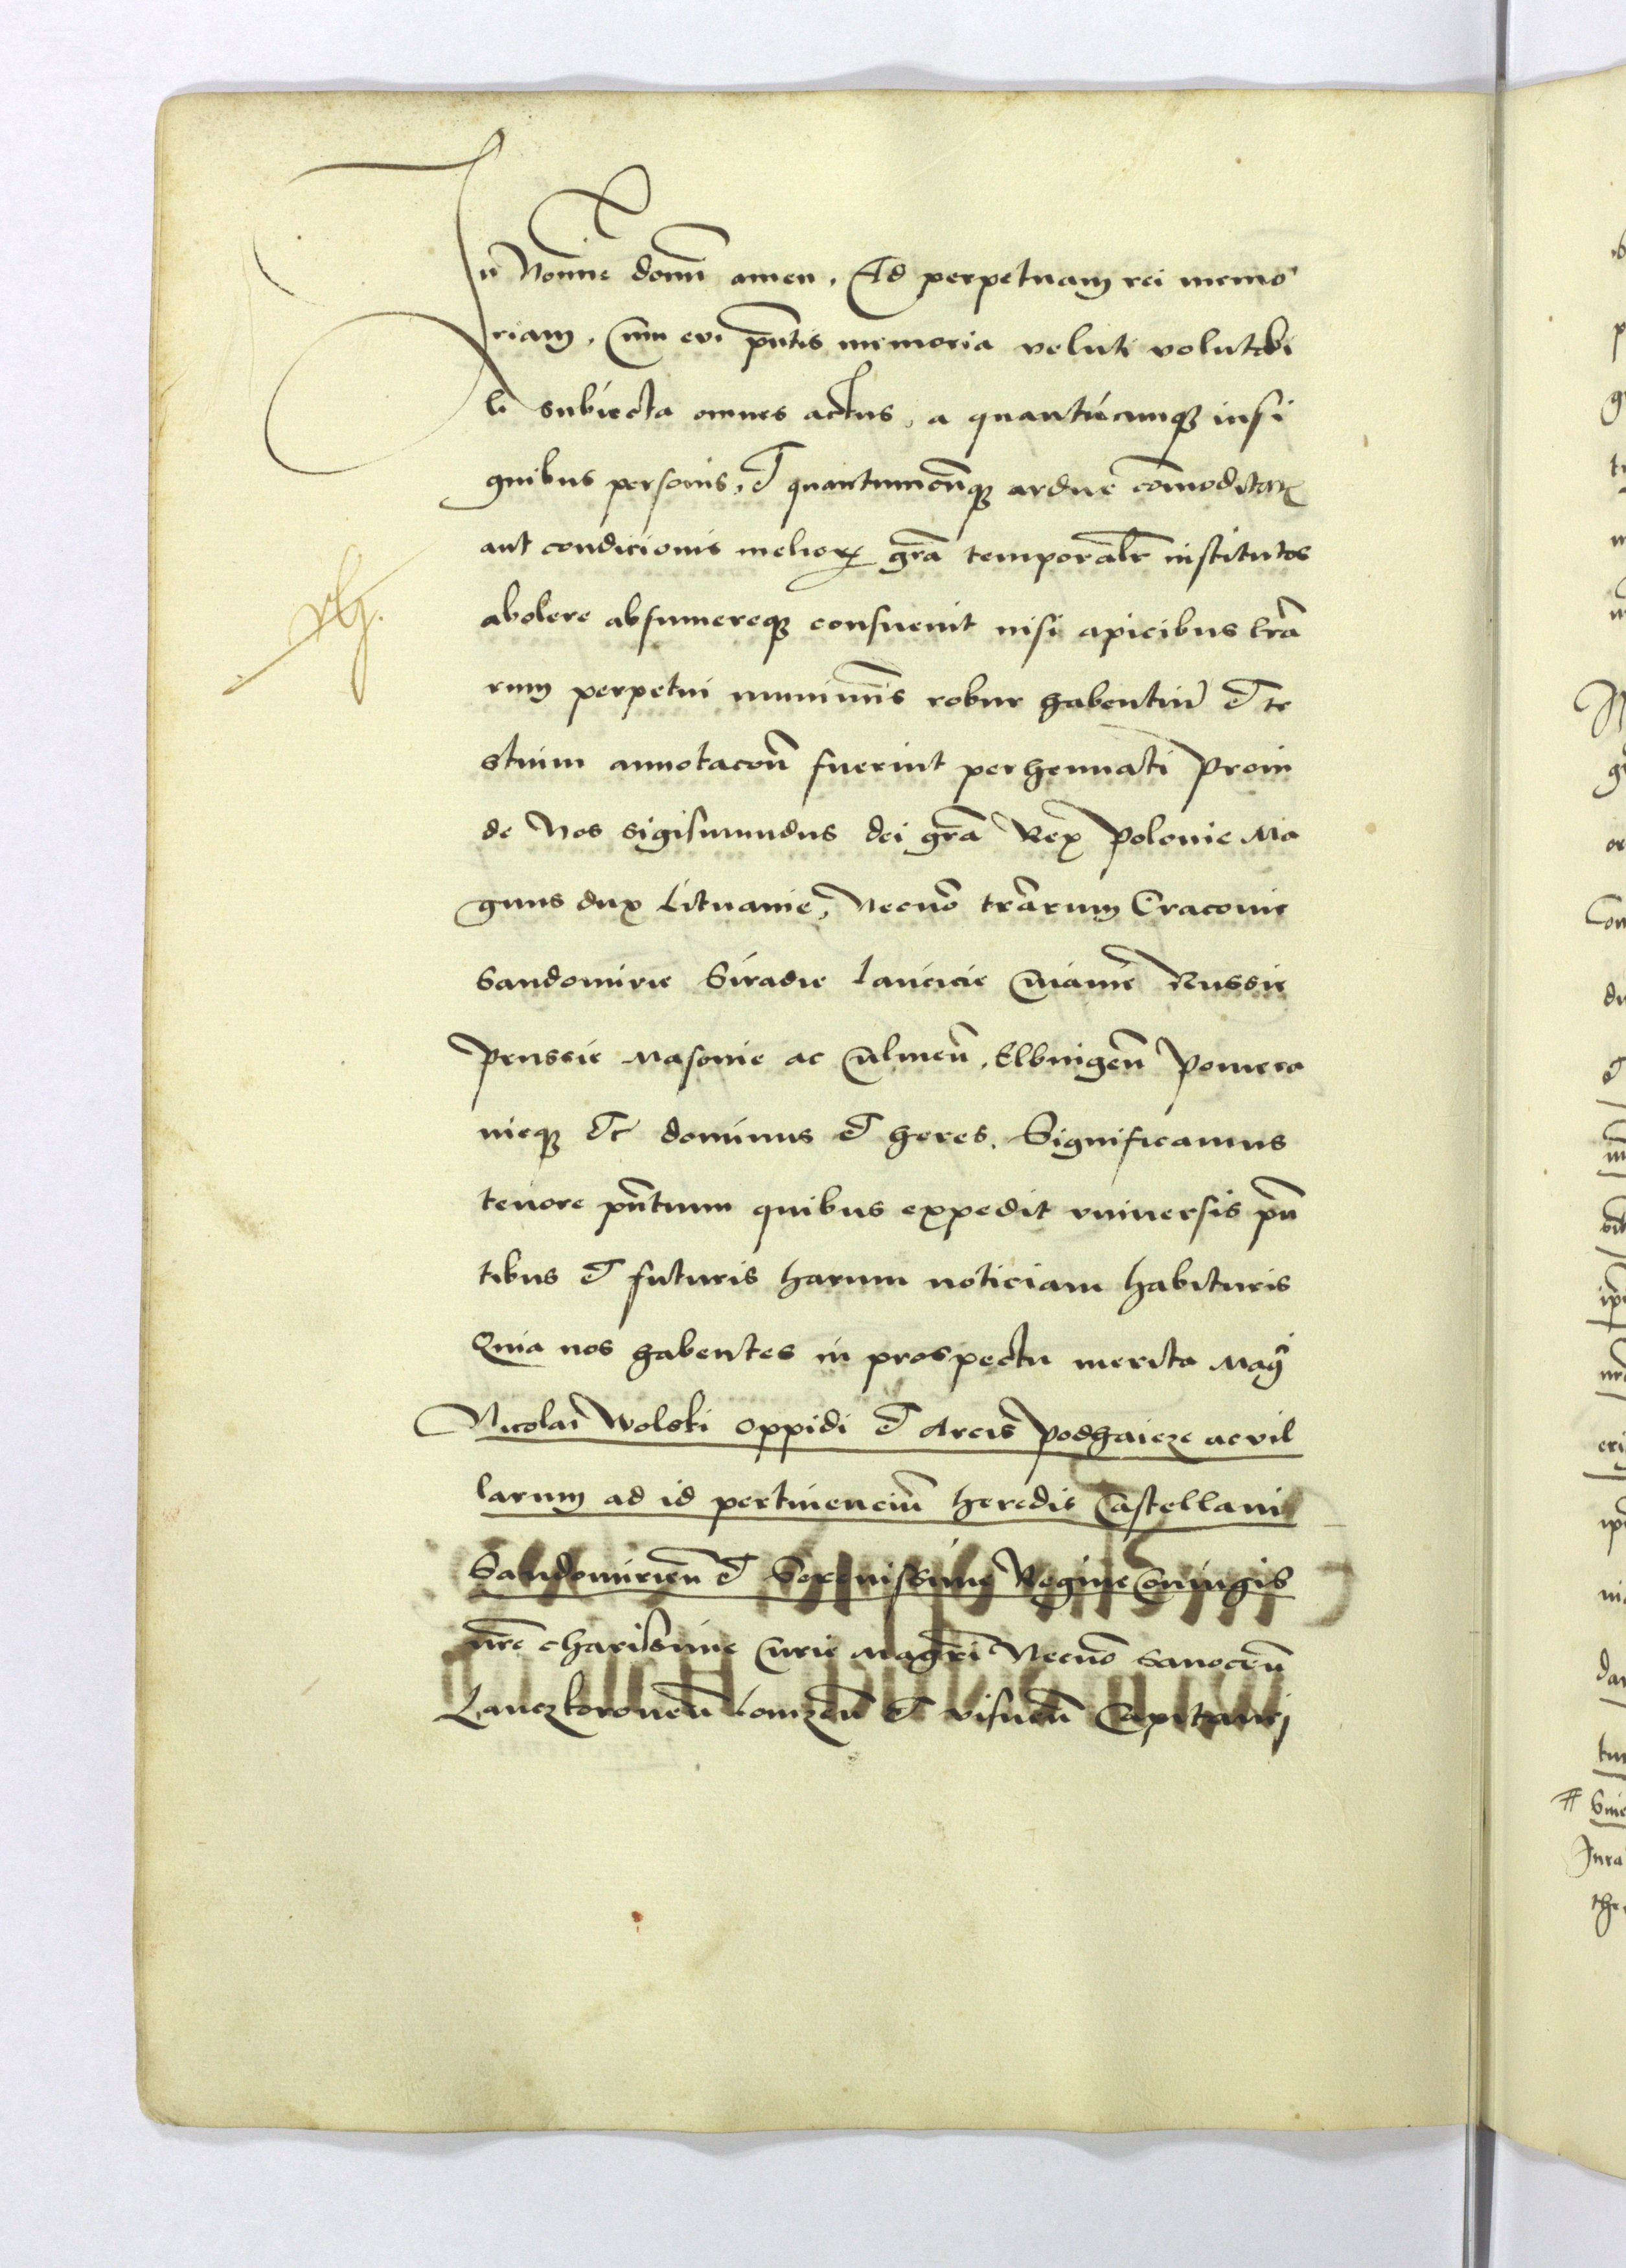 In Nomine domī amen. Ad perpetuam rei memo
riam. Cum evi pn̄tis memoria veluti volutabi
li subiecta omnes actus, a quantiscumq̨ insi
gnibus personis, et quantumcūnq̨ ardue com̄oditatꝭ
aut condicionis melioꝝ gr̄a temporalr̄ institutos
abolere absumereq̨ consuevit nisi apicibus lr̄a
rum perpetui munimīs robur habentiū et te
stium annotacōn̄ fuerint perhennati Proin
de Nos Sigismundus dei gr̄a Rex Polonie Ma
gnus dux Lituanie, Necnō trārum Cracovie
Sandomirie Siradie Lancicie Cuiavie Russie
Prussie Masovie ac Culmeñ. Elbingeñ Pomera
nieq̨ etc dominus et heres. Significamus
tenore pn̄tium quibus expedit universis pn̄
tibus et futuris harum noticiam habituris
Quia nos habentes in prospectu merita Mag̃
Nicolai Wolski oppidi et Arcis Podhaieze ac vil
larum ad id pertinenciū heredis Castellani
Sandomirieñ et Serenissime Regine Coniugis
nr̄e charissime Curie Magrī Necnō Sanoceñ
Lanczkoroneñ Lomzeñ et Visneñ Capitanei